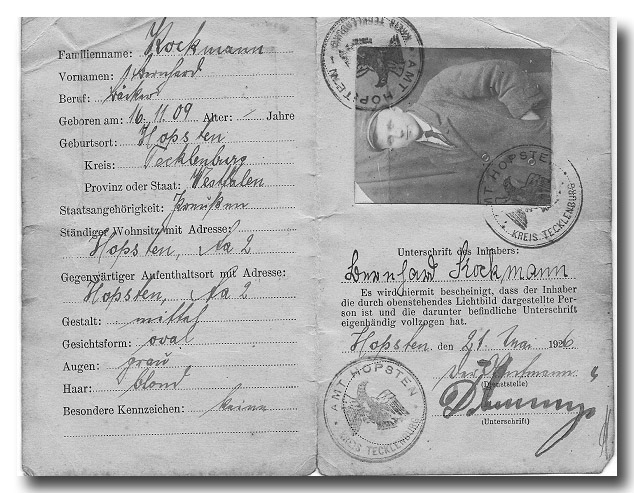 Familienname: Kockmann
Vornamen: Bernhard
Beruf: Bäcker
Geboren am: 16.11.09 Alter: — Jahre
Geburtsort: Hopsten
Kreis: Tecklenburg
Provinz oder Staat: Westfalen
Staatsangehörigkeit: Preußen
Ständiger Wohnsitz mit Adresse:
Hopsten,
Gegenwärtiger Aufenthaltsort mit Adresse:
Hopsten,
Gestalt: mittel
Gesichtsform: oval
Augen: grau
Haar: blond
Besondere Kennzeichen: keine
AMT HOPSTEN
KREIS TECKLENBURG
AMT HOPSTEN
KREIS TECKLENBURG
Unterschrift des Inhabers:
Bernhard Kockmann
Es wird hiermit bescheinigt, dass der Inhaber
die durch obenstehendes Lichtbild dargestellte Per-
son ist und die darunter befindliche Unterschrift
eigenhändig vollzogen hat.
Hopsten, den 21. Mai 1926
Der Amtmann
(Dienststelle)
(Unterschrift)
AMT HOPSTEN
KREIS TECKLENBURG